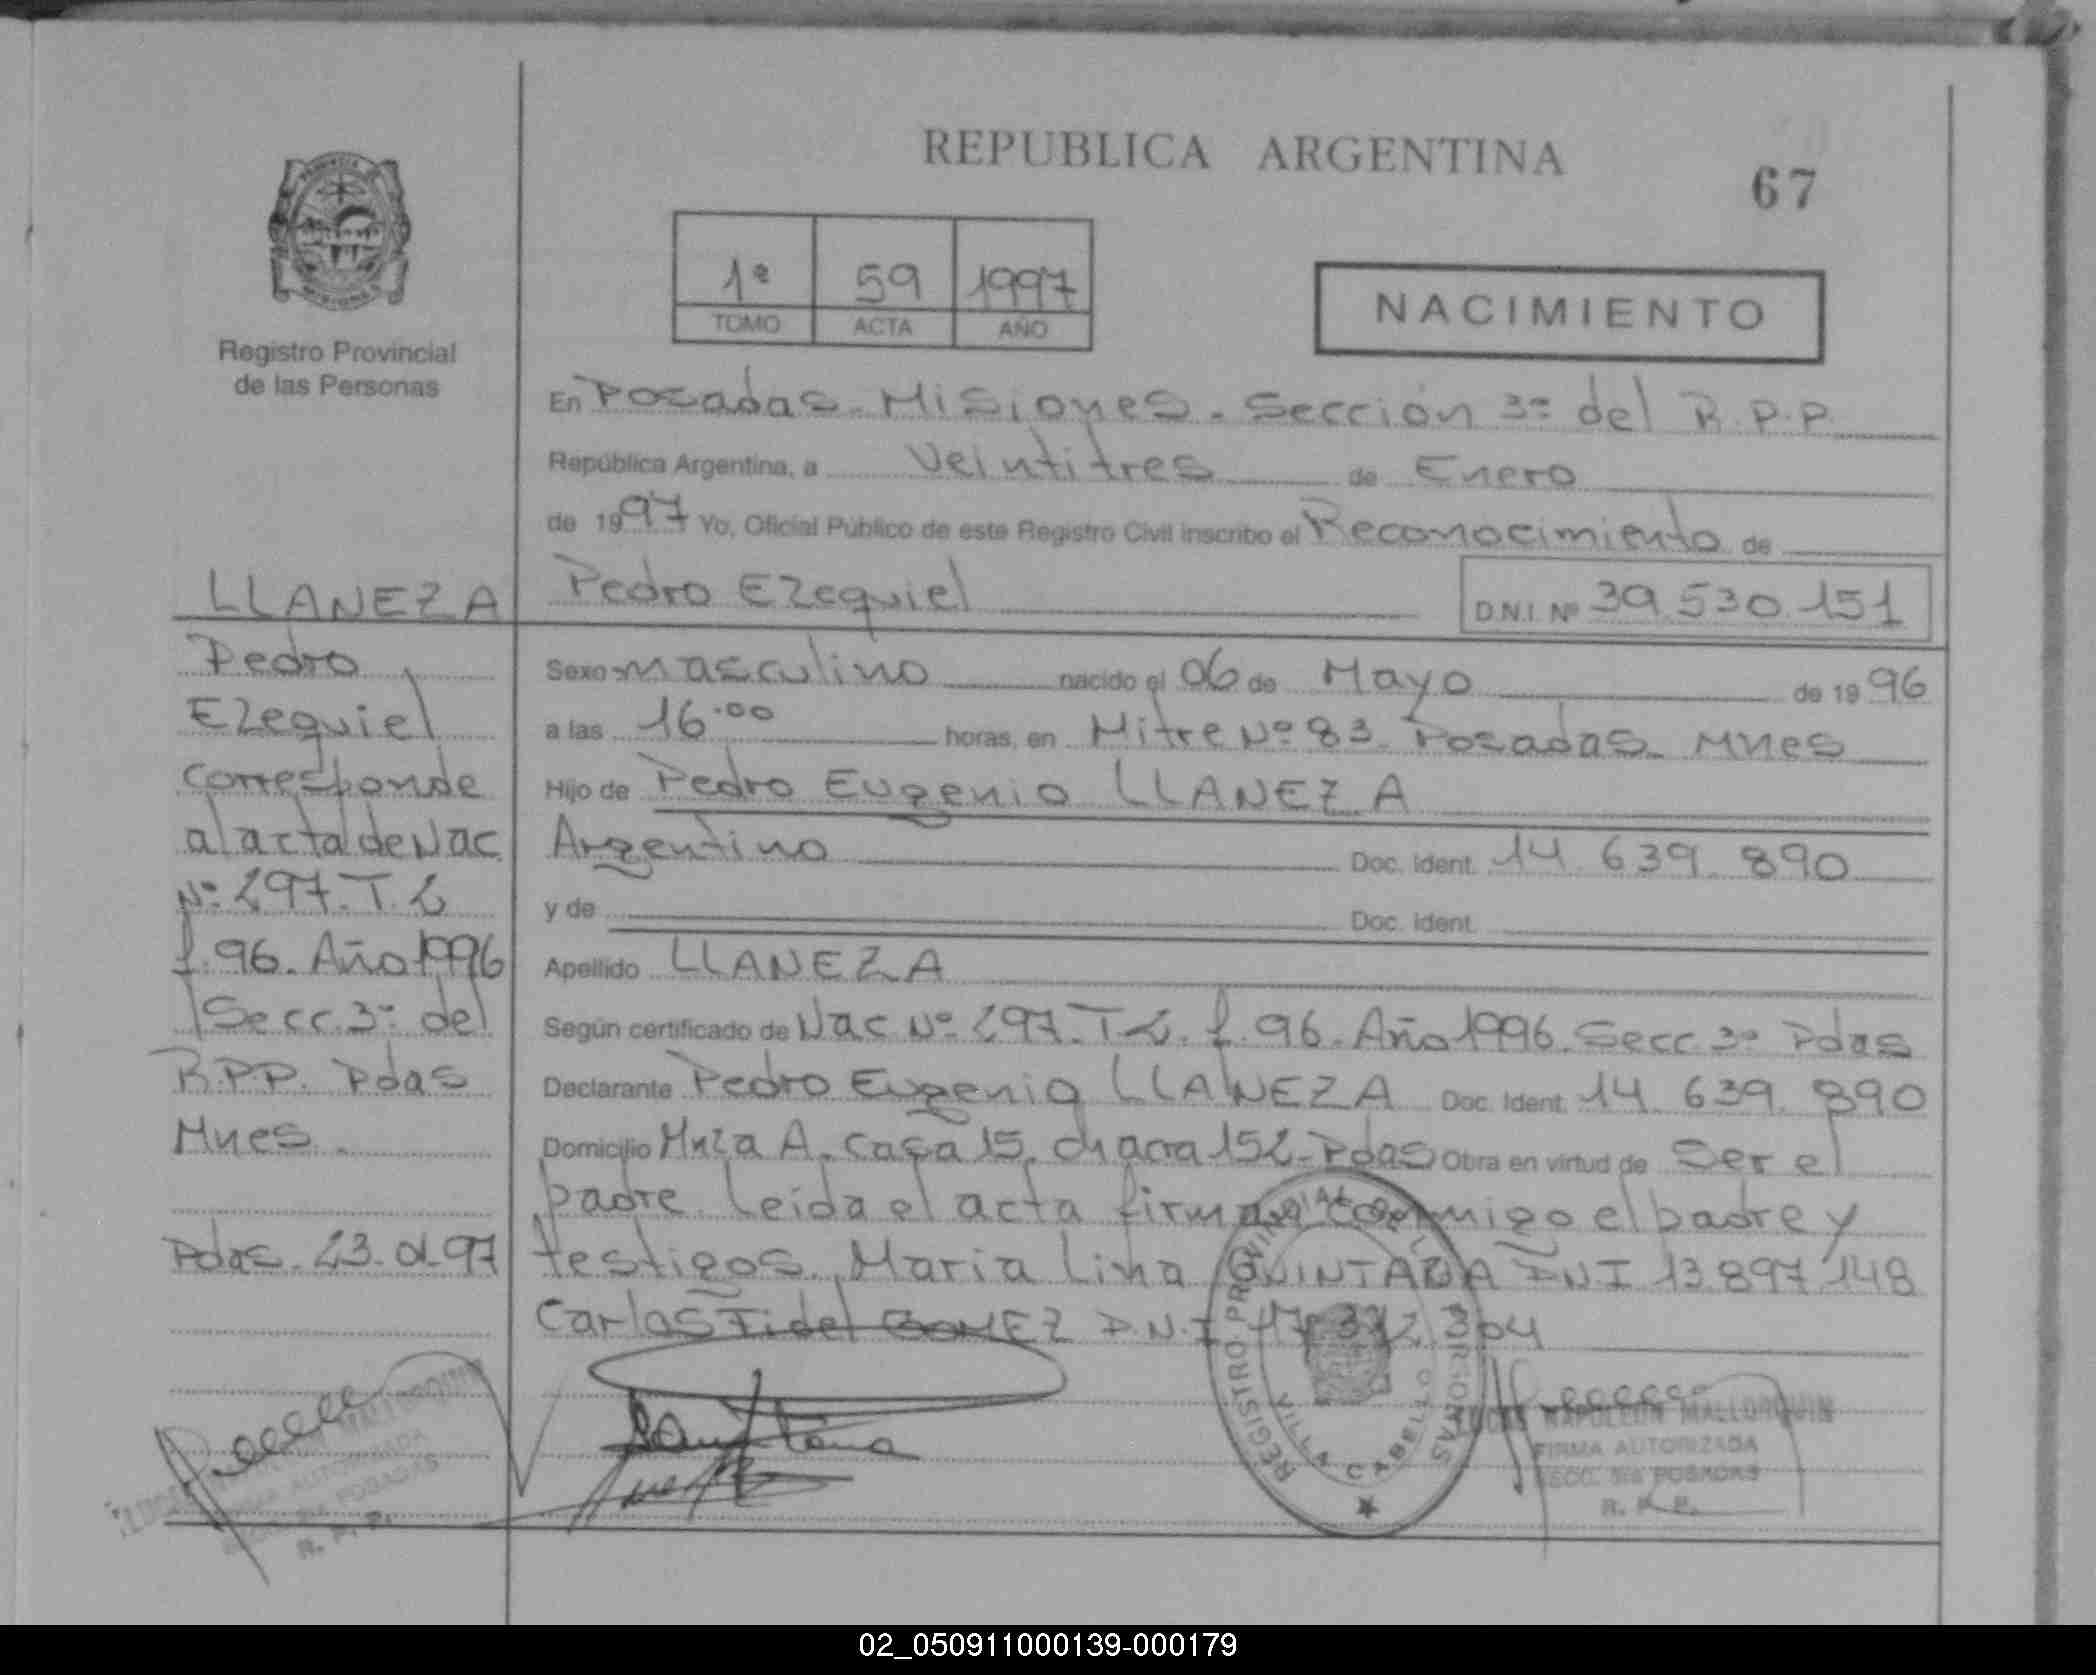 REPUBLICA ARGENTINA
67
1ª 59 1997
TOMO ACTA AÑO
NACIMIENTO
Registro Provincial
de las Personas
En Posadas - Misiones - Sección 3ª del R.P.P.
República Argentina, a veintitres de Enero
de 1997 Yo, Oficial Público de este Registro Civil inscribo el Reconocimiento de
Pedro Ezequiel D.N.I. Nº 39.530.151
Sexo masculino nacido el 06 de Mayo de 1996
a las 16.00 horas, en Mitre Nº 83. Posadas - Mnes
Hijo de Pedro Eugenio LLANEZA
Argentino Doc. Ident. 14.639.890
y de Doc. Ident.
Apellido LLANEZA
Según certificado de Nac Nº 297. T 2. f. 96. Año 1996. Secc. 3ª Pdas
Declarante Pedro Eugenio LLANEZA Doc. Ident. 14.639.890
Domicilio Mnza A. Casa 15. chacra 152 - Pdas Obra en virtud de Ser el
padre. Leída el acta firman conmigo el padre y
testigos. Maria Lina QUINTANA DNI 13.897.148
Carlos Fidel GOMEZ D.N.I
LLANEZA
Pedro
Ezequiel
corresponde
al acta de Nac
Nº 297. T. 2
f. 96. Año 1996
Secc. 3ª del
R.P.P. Pdas
Mnes.
Pdas. 23.01.97
REGISTRO PROVINCIAL DE LAS PERSONAS
VILLA CABELLO
LUCAS NAPOLEON MALLORQUIN
FIRMA AUTORIZADA
SECC. 3ra POSADAS
R. P. P.
MALLORQUIN
AUTORIZADA
POSADAS
R. P. P.
02_050911000139-000179